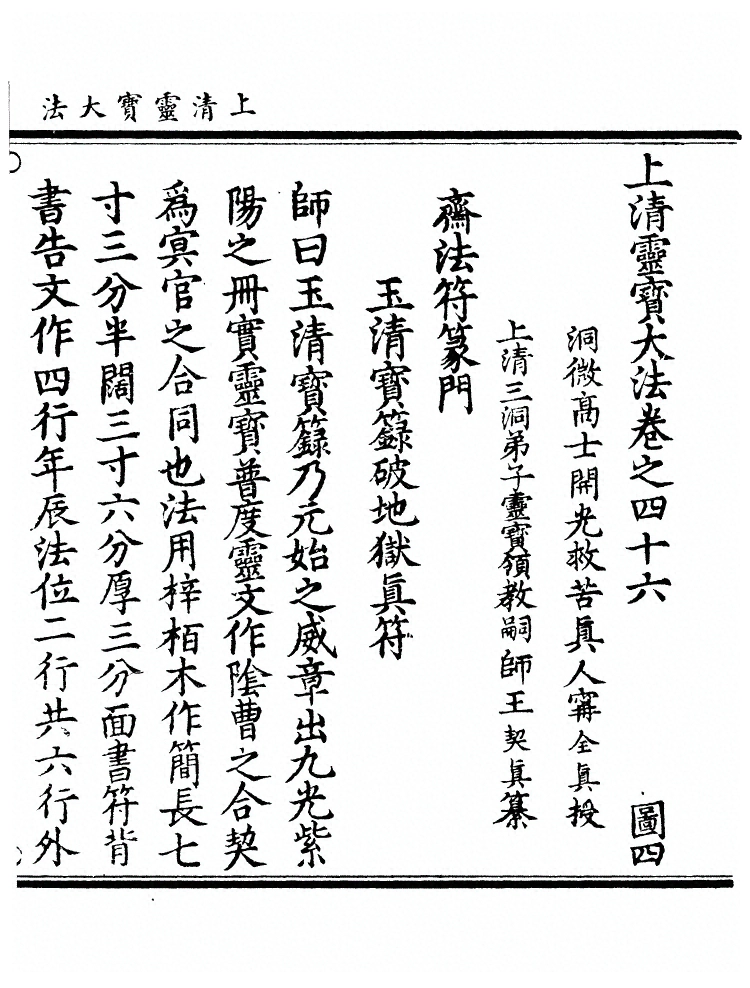 上清靈寶大法
上清靈寶大法卷之四十六 圖四
洞微高士開光救苦眞人甯全眞授
上清三洞弟子靈寶領教嗣師王契眞纂
齋法符篆門
玉清寶籙破地獄眞符
師曰玉清寶籙乃元始之威章出九光紫
陽之冊實靈寶普度靈文作陰曹之合契
爲冥官之合同也法用梓栢木作簡長七
寸三分半闊三寸六分厚三分面書符背
書告文作四行年辰法位二行共六行外